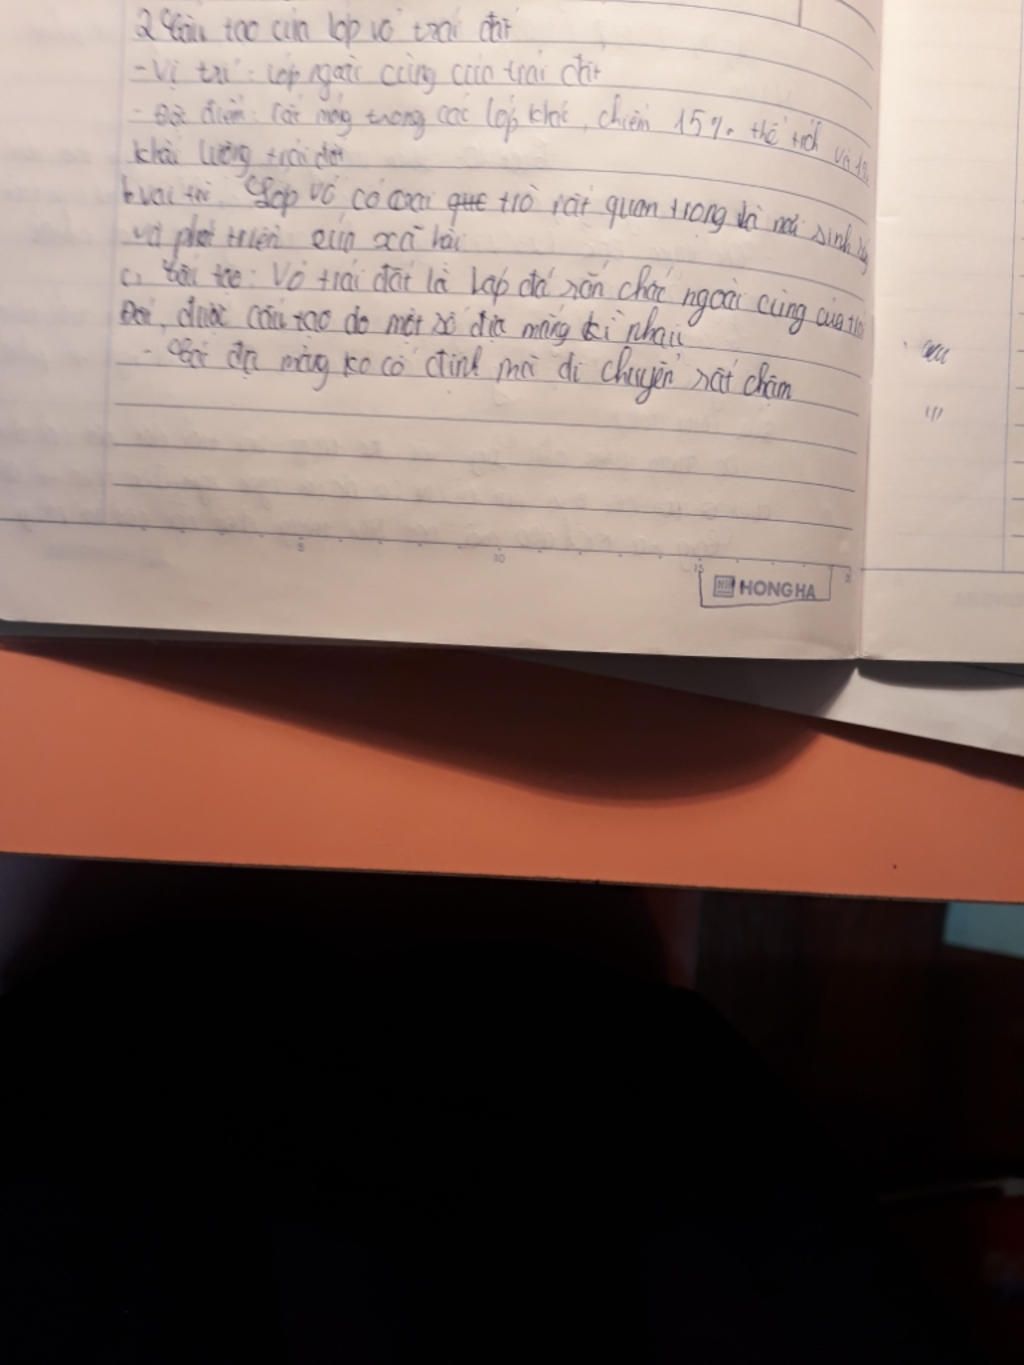 2 Cấu tạo của lớp vỏ trái đất
- Vị trí : lớp ngoài cùng của trái đất
- Đặc điểm : rất mỏng trong các lớp khác, chiếm 15% thể tích và 1%
khối lượng trái đất
b vai trò Lớp vỏ có vai trò rất quan trọng là nơi sinh
và phát triển của xã hội
c, Cấu tạo : Vỏ trái đất là lớp đá rắn chắc ngoài cùng của
Đất, được cấu tạo do một số địa mảng kì nhau
- Các địa mảng ko cố định mà di chuyển rất chậm
5 10 15
HONG HA